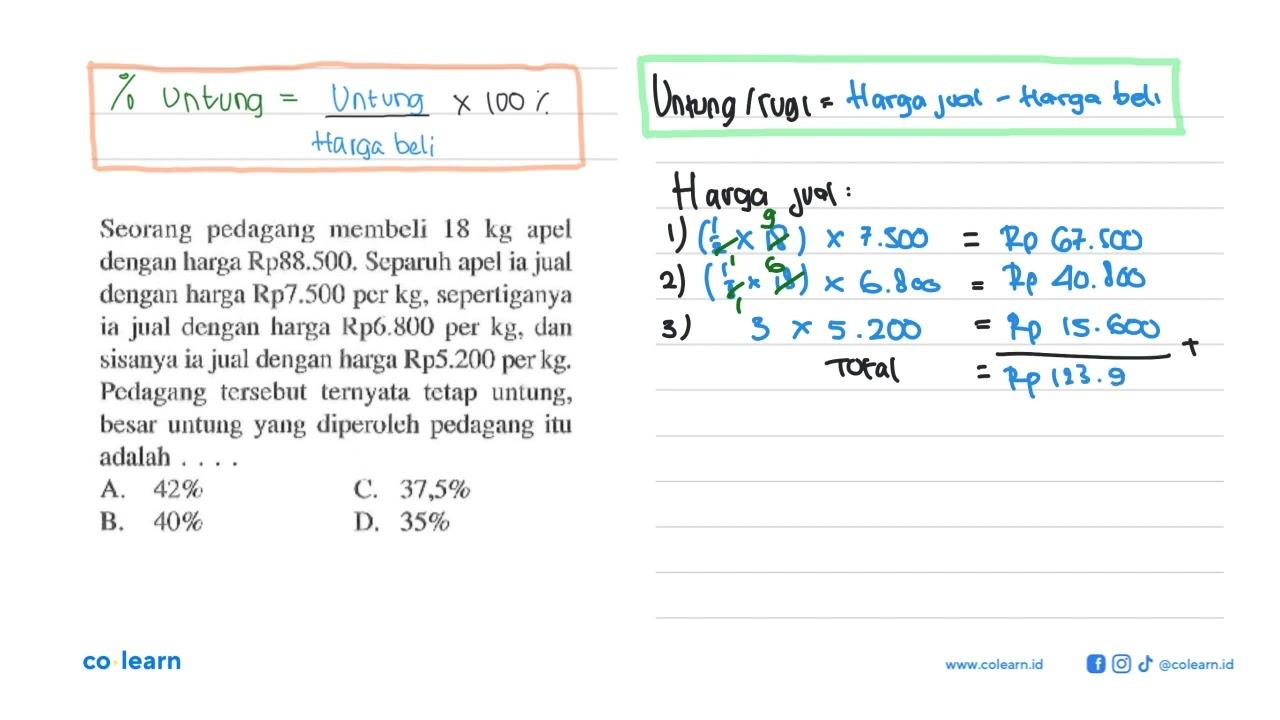 % Untung = Untung x 100 %
Harga beli
Untung / rugi = Harga jual - Harga beli
Seorang pedagang membeli 18 kg apel
dengan harga Rp88.500. Separuh apel ia jual
dengan harga Rp7.500 per kg, sepertiganya
ia jual dengan harga Rp6.800 per kg, dan
sisanya ia jual dengan harga Rp5.200 per kg.
Pedagang tersebut ternyata tetap untung,
besar untung yang diperoleh pedagang itu
adalah . . . .
A. 42% C. 37,5%
B. 40% D. 35%
Harga jual :
1) (1/2 x 18) 9 x 7.500 = Rp 67.500
2) (1/3 x 18) 6 x 6.800 = Rp 40.800
3) 3 x 5.200 = Rp 15.600 +
Total = Rp 123.9
co learn
www.colearn.id @colearn.id